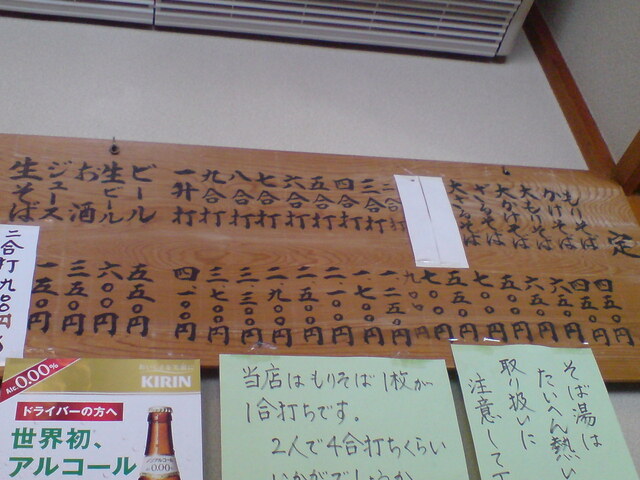 定
もりそば
かけそば
大もりそば
大かけそば
ざるそば
大ざるそば
二合打
三合打
四合打
五合打
六合打
七合打
八合打
九合打
一升打
ビール 五五〇円
生ビール 六〇〇円
お酒 三五〇円
ジュース 一五〇円
生そば
二合打九〇〇円
四五〇円
四五〇円
六五〇円
六五〇円
五五〇円
七〇〇円
五五〇円
七〇〇円
九〇〇円
そば湯は
たいへん熱い
取り扱いに
注意して下
当店はもりそば1枚が
1合打ちです。
2人で4合打ちくらい
いかがでしょうか
Alc.0.00%
KIRIN
ドライバーの方へ
世界初、
アルコール
0.00